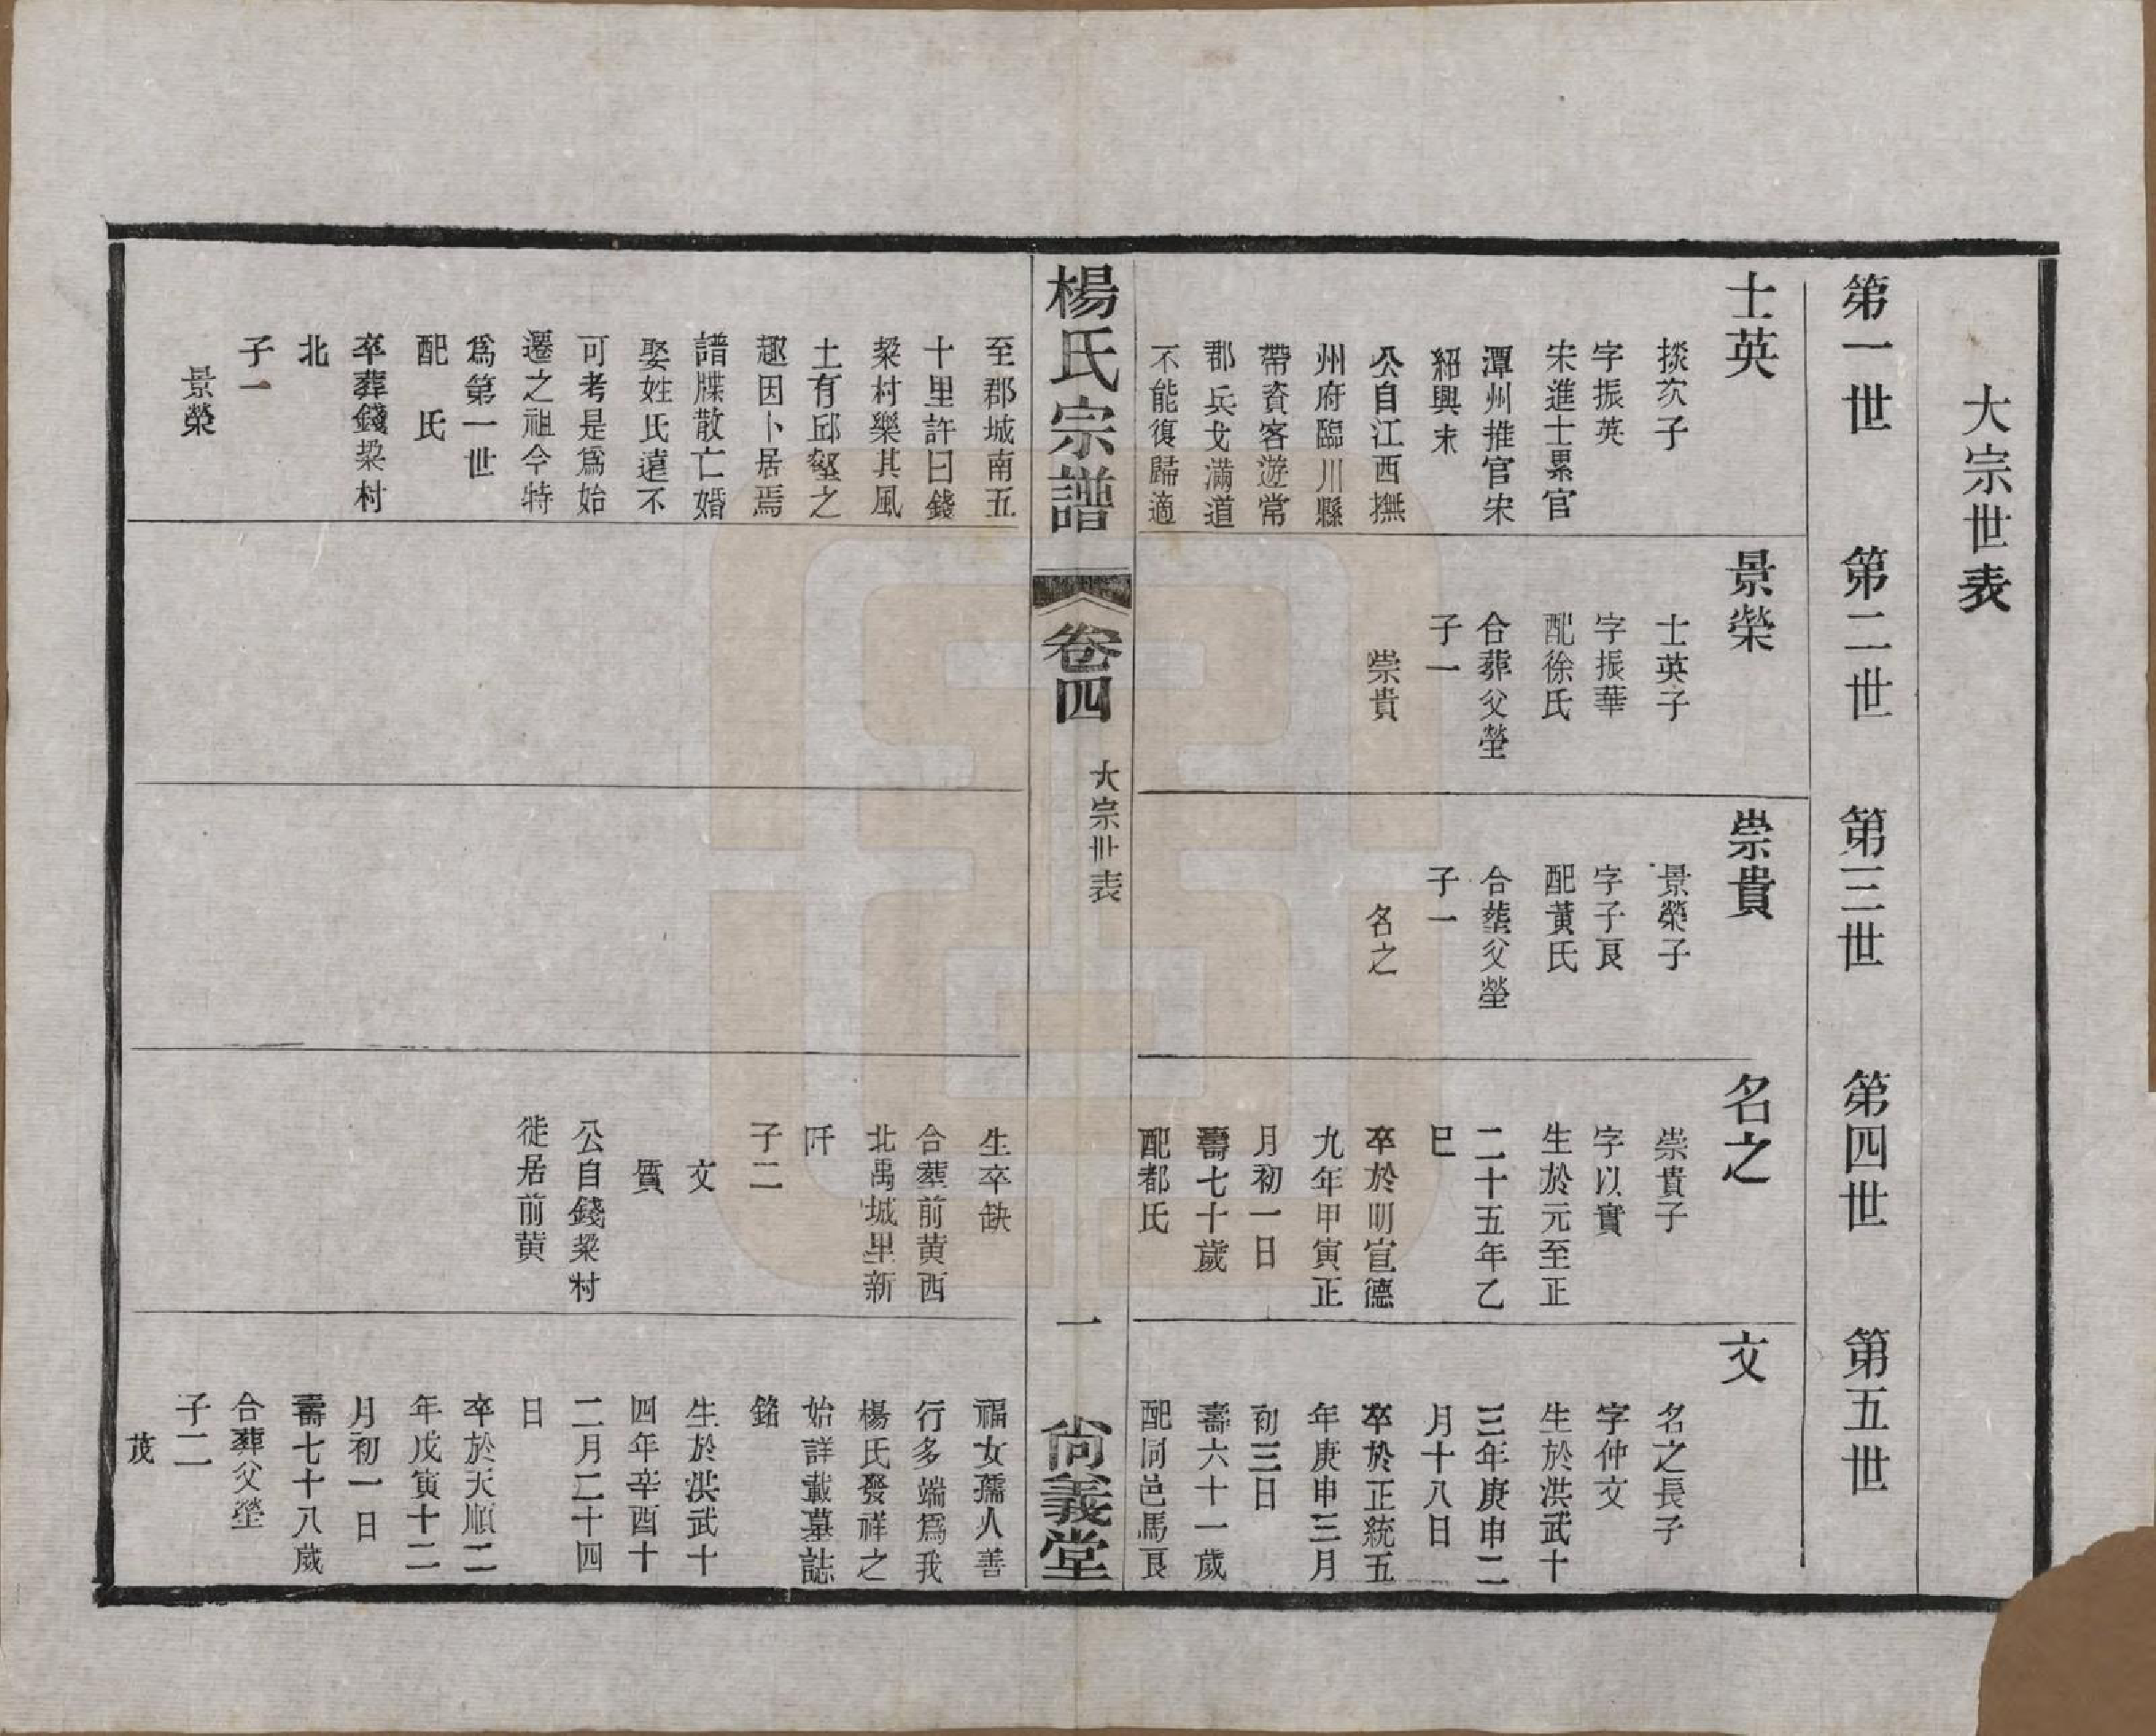 大宗世表
第一世
第二世
第三世
第四世
第五世
士英
掞次子
字振英
宋進士累官
潭州推官宋
紹興末
公自江西撫
州府臨川縣
帶資客遊常
郡兵戈滿道
不能復歸適
至郡城南五
十里許曰錢
梁村樂其風
土有邱壑之
趣因卜居焉
譜牒散亡婚
娶姓氏遠不
可考是爲始
遷之祖今特
爲第一世
配　氏
卒葬錢梁村
北
子一
景榮
景榮
士英子
字振華
配徐氏
合葬父塋
子一
崇貴
崇貴
景榮子
字子良
配黃氏
合葬父塋
子一
名之
名之
崇貴子
字以實
生於元至正
二十五年乙
巳
卒於明宣德
九年甲寅正
月初一日
壽七十歲
配都氏
生卒缺
合葬前黃西
北禹城里新
阡
子二
文
質
公自錢梁村
徙居前黄
文
名之長子
字仲文
生於洪武十
三年庚申二
月十八日
卒於正統五
年庚申三月
初三日
壽六十一歲
配同邑馬良
福女孺人善
行多端爲我
楊氏發祥之
始詳載墓誌
銘
生於洪武十
四年辛酉十
二月二十四
日
卒於天順二
年戊寅十二
月初一日
壽七十八歲
合葬父塋
子二
茂
楊氏宗譜
卷四
大宗世表
一
尙義堂